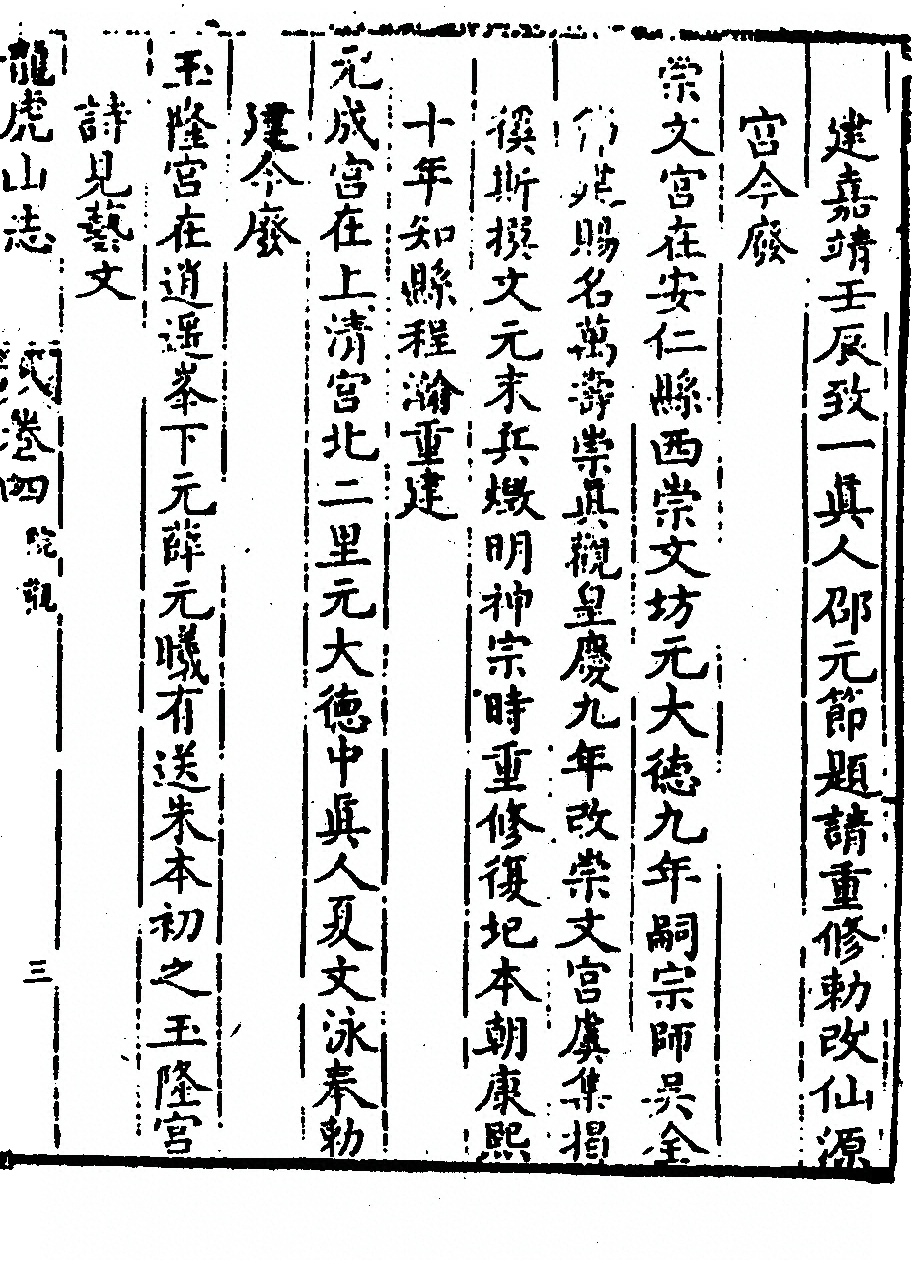 建嘉靖壬辰致一眞人邵元節題請重修勅改仙源
宮今廢
崇文宮在安仁縣西崇文坊元大德九年嗣宗師吳全
節建賜名萬壽崇眞觀皇慶九年改崇文宮虞集揭
徯斯撰文元末兵燬明神宗時重修復圮本朝康熙
十年知縣程瀚重建
元成宮在上清宮北二里元大德中眞人夏文泳奉勅
建今廢
玉隆宮在逍遥峯下元薛元曦有送朱本初之玉隆宮
詩見藝文
龍虎山志
卷四
院觀
三